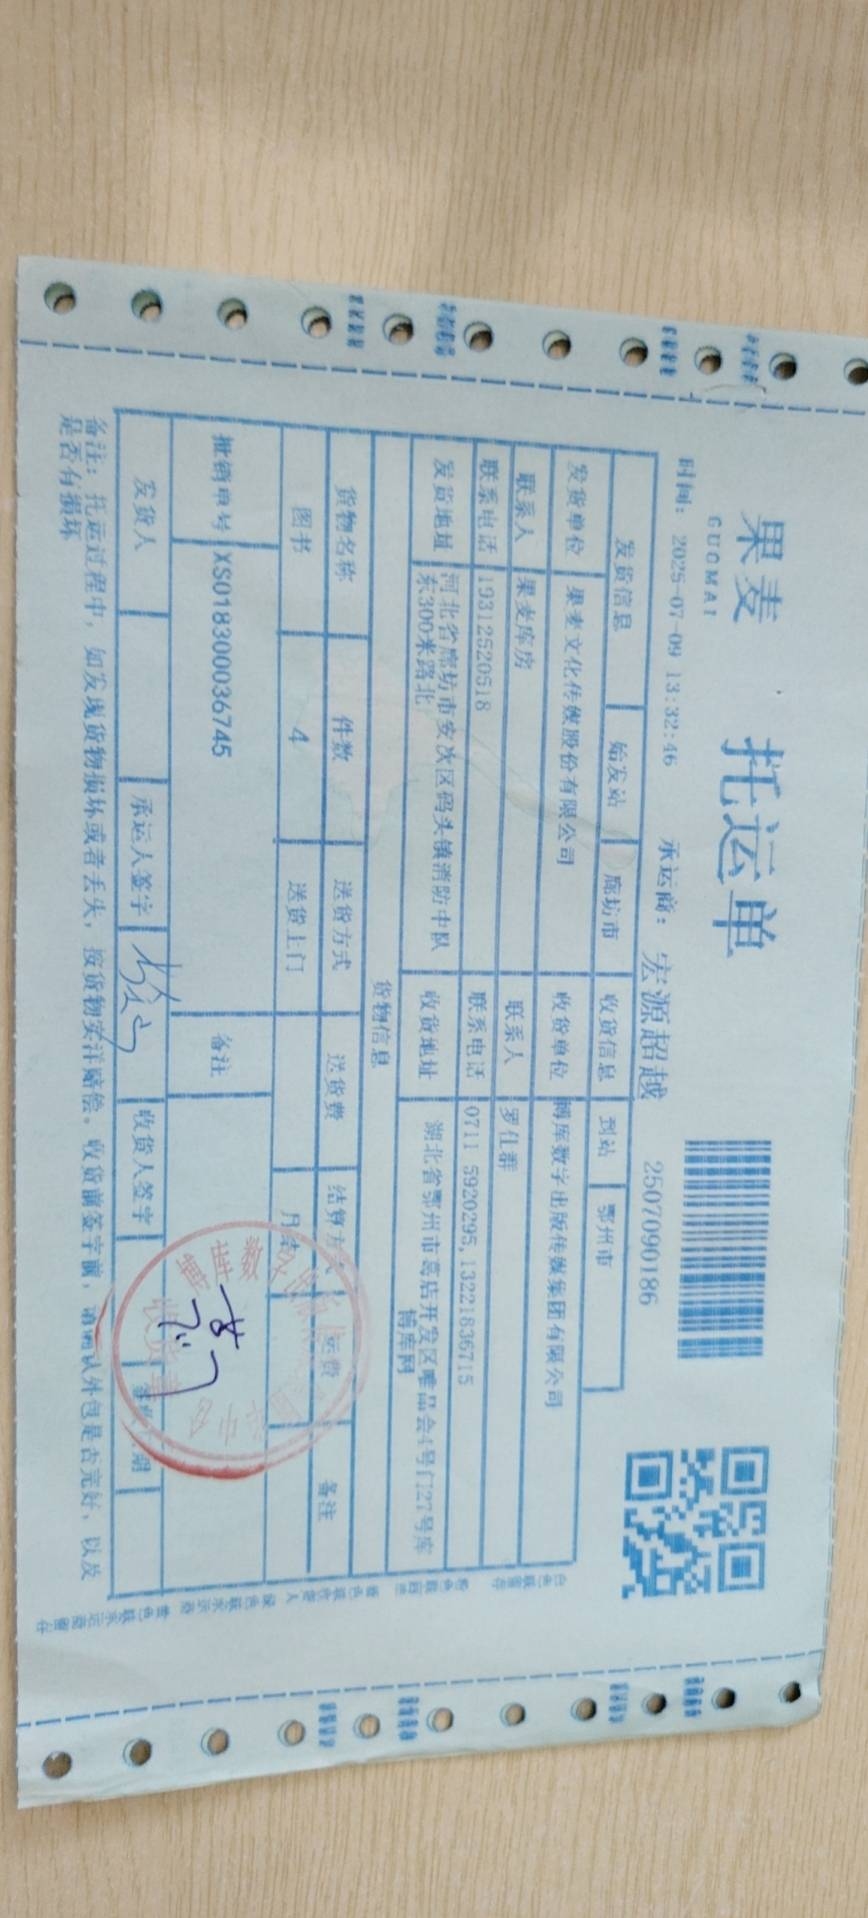 果麦
GUOMAI
托运单
时间: 2025-07-09 13:32:46 承运商: 宏源超越 2507090186
发货信息 始发站 廊坊市 收货信息 到站 鄂州市
发货单位 果麦文化传媒股份有限公司 收货单位 博库数字出版传媒集团有限公司
联系人 果麦库房 联系人 罗仕群
联系电话 19312520518 联系电话 0711 5920295,13221836715
发货地址 河北省廊坊市安次区码头镇消防中队
东300米路北 收货地址 湖北省鄂州市葛店开发区唯品会4号门27号库
博库网
货物信息
货物名称 件数 送货方式 送货费 结算方式 运费 备注
图书 4 送货上门 月结
批销单号 XS018300036745 备注
发货人 承运人签字 收货人签字 签收日期
备注: 托运过程中, 如发现货物损坏或者丢失, 按货物实洋赔偿。收货前签字前, 请确认外包是否完好, 以及
是否有损坏
博库数字出版
收货章